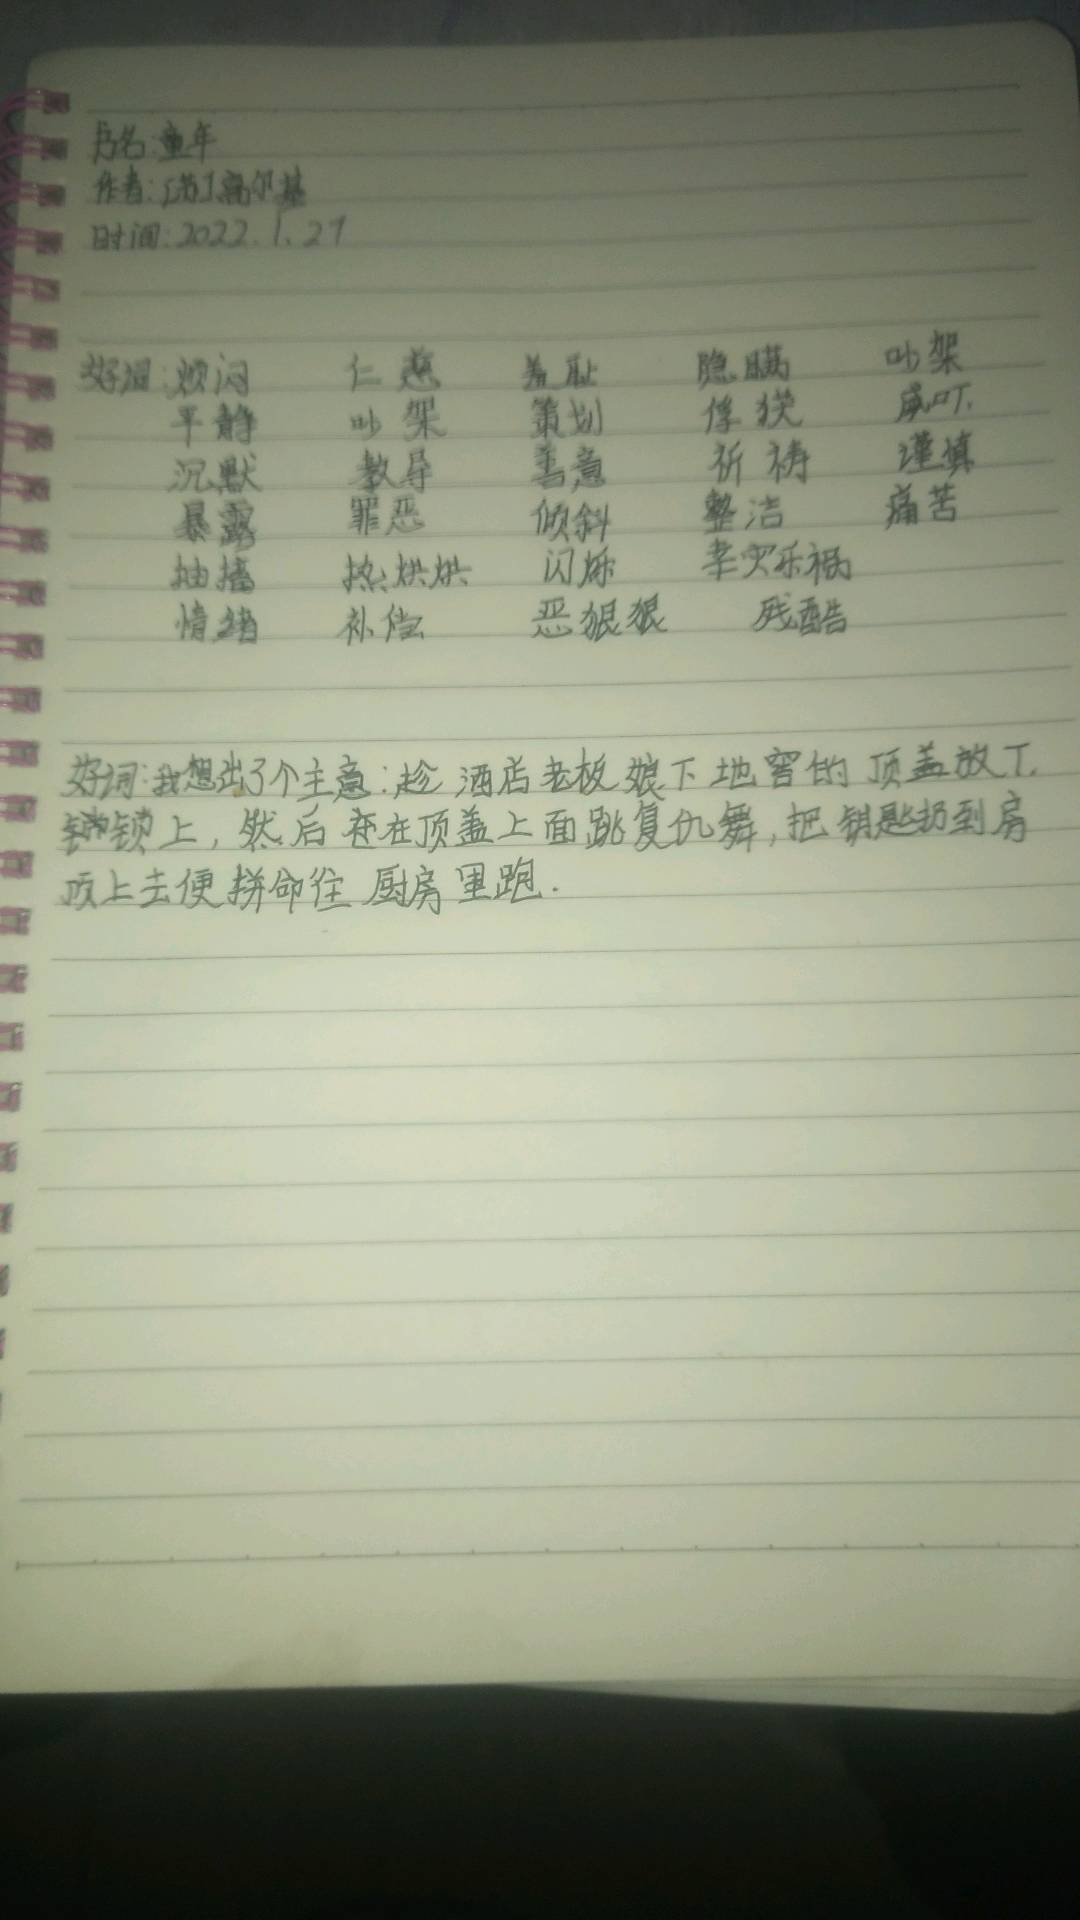 书名:童年
作者:[苏]高尔基
时间:2022.1.27
好词:烦闷 仁慈 羞耻 隐瞒 吵架
平静 吵架 策划 俘获 威吓
沉默 教导 善意 祈祷 谨慎
暴露 罪恶 倾斜 整洁 痛苦
抽搐 热烘烘 闪烁 幸灾乐祸
情绪 补偿 恶狠狠 残酷
好词:我想出了个主意:趁酒店老板娘下地窖的顶盖放下,
锁上,然后在顶盖上面跳复仇舞,把钥匙扔到房
顶上去便拼命往厨房里跑.